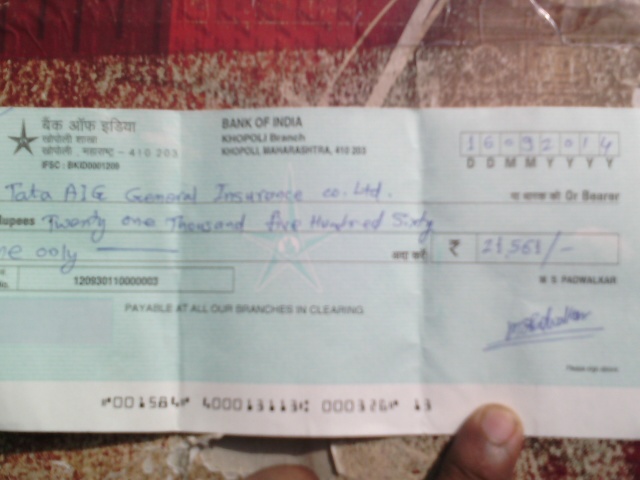 बैंक ऑफ इंडिया
खोपोली शाखा
खोपोली, महाराष्ट्र - 410 203
IFSC : BKID0001209
BANK OF INDIA
KHOPOLI Branch
KHOPOLI, MAHARASHTRA, 410 203
16092014
D D M M Y Y Y Y
Tata AIG General Insurance co. Ltd.
या धारक को Or Bearer
Rupees Twenty one Thousand five Hundred Sixty
one only
अदा करें ₹ 21,561/-
No. 120930110000003
M S PADWALKAR
PAYABLE AT ALL OUR BRANCHES IN CLEARING
Please sign above
⑈001584⑈ 400013113⑆ 000326⑈ 13